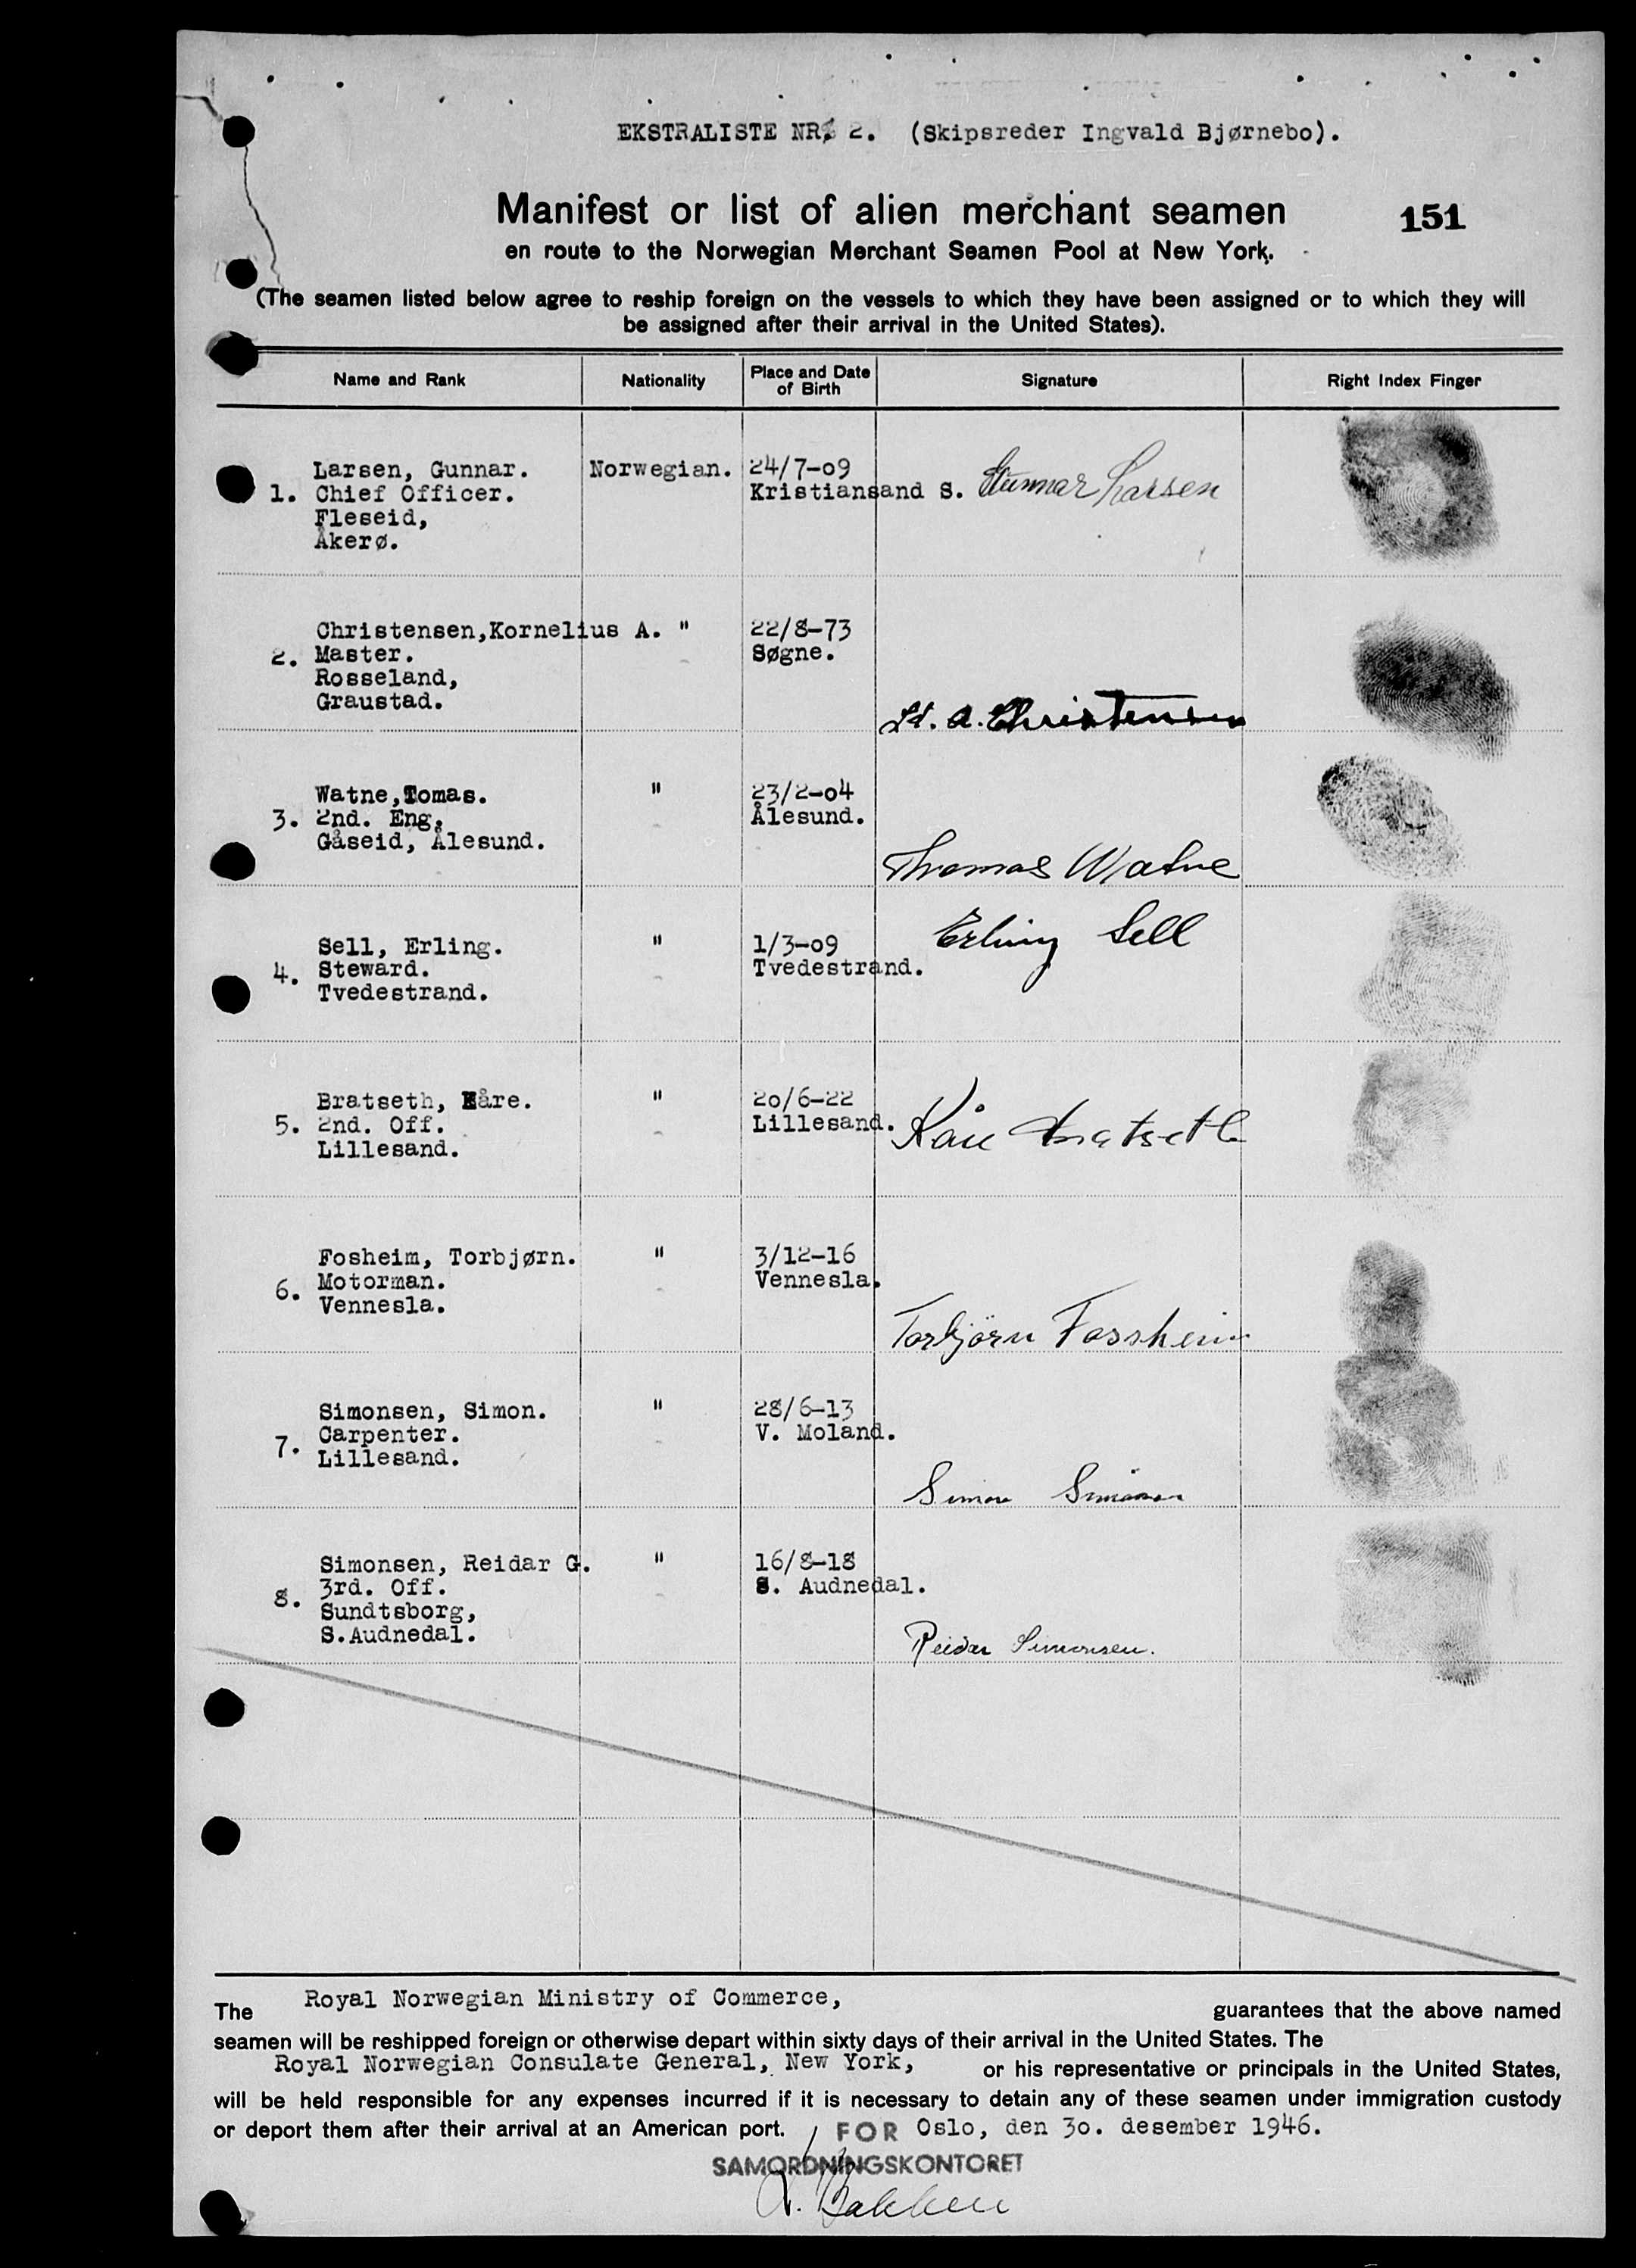 EKSTRALISTE NR. 2. (Skipsreder Ingvald Bjørnebo).
Manifest or list of alien merchant seamen
151
en route to the Norwegian Merchant Seamen Pool at New York.
(The seamen listed below agree to reship foreign on the vessels to which they have been assigned or to which they will
be assigned after their arrival in the United States).
Name and Rank
Nationality
Place and Date
of Birth
Signature
Right Index Finger
1.
Larsen, Gunnar.
Chief Officer.
Fleseid,
Åkerø.
Norwegian.
24/7-09
Kristiansand S.
Gunnar Larsen
2.
Christensen,Kornelius A.
Master.
Rosseland,
Graustad.
"
22/8-73
Søgne.
A. Christensen
3.
Watne,Tomas.
2nd. Eng.
Gåseid, Ålesund.
"
23/2-04
Ålesund.
Thomas Watne
4.
Sell, Erling.
Steward.
Tvedestrand.
"
1/3-09
Tvedestrand.
Erling Sell
5.
Bratseth, Kåre.
2nd. Off.
Lillesand.
"
20/6-22
Lillesand.
Kåre Bratseth
6.
Fosheim, Torbjørn.
Motorman.
Vennesla.
"
3/12-16
Vennesla.
Torbjörn Fossheim
7.
Simonsen, Simon.
Carpenter.
Lillesand.
"
28/6-13
V. Moland.
Simon Simonsen
8.
Simonsen, Reidar G.
3rd. Off.
Sundtsborg,
S.Audnedal.
"
16/8-18
S. Audnedal.
Reidar Simonsen.
The Royal Norwegian Ministry of Commerce, guarantees that the above named
seamen will be reshipped foreign or otherwise depart within sixty days of their arrival in the United States. The
Royal Norwegian Consulate General, New York, or his representative or principals in the United States,
will be held responsible for any expenses incurred if it is necessary to detain any of these seamen under immigration custody
or deport them after their arrival at an American port. FOR Oslo, den 30. desember 1946.
SAMORDNINGSKONTORET
Bakken